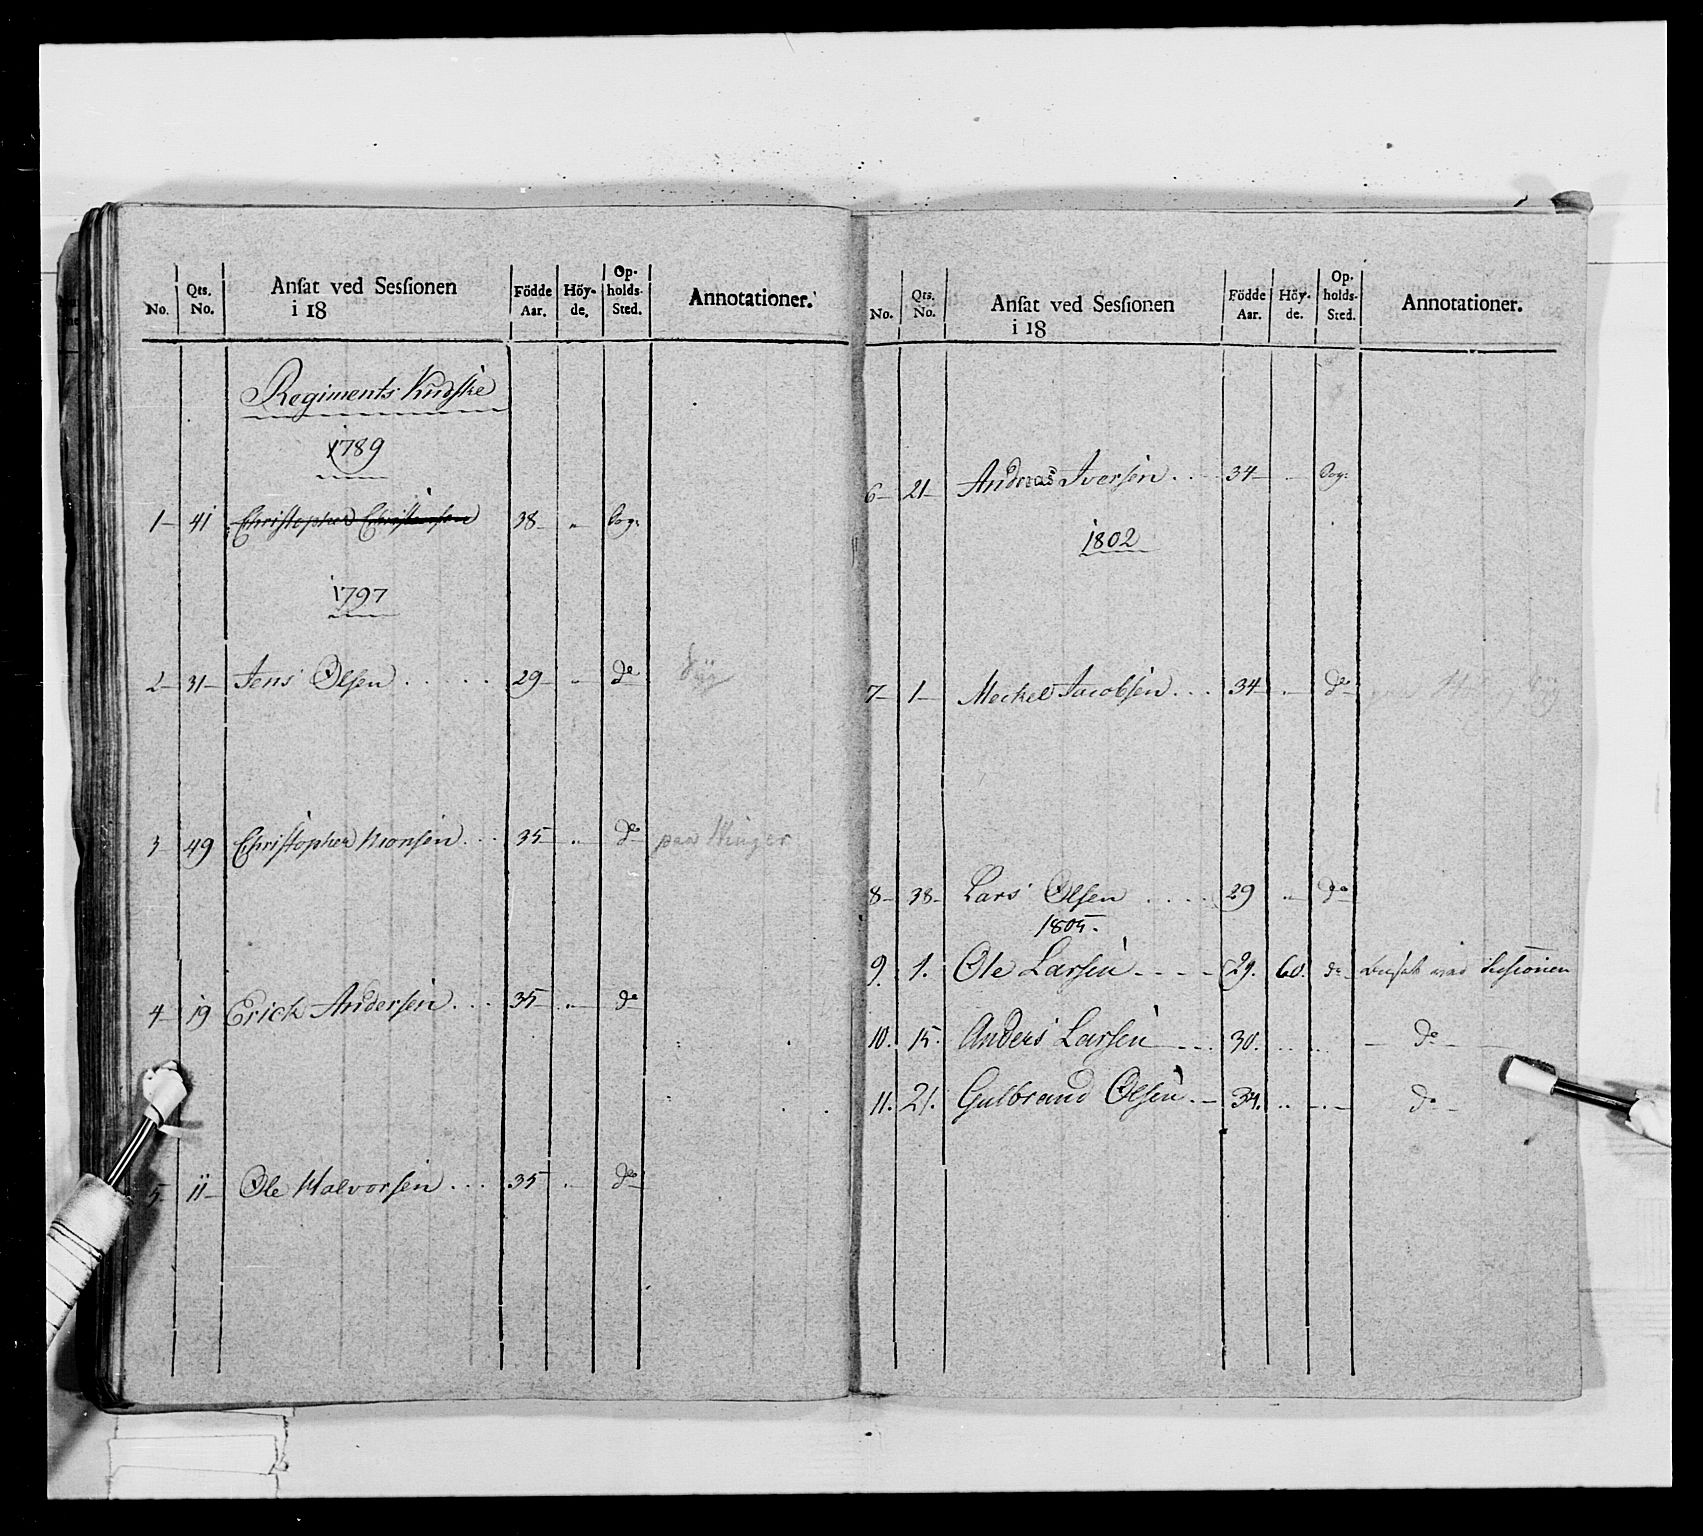 No. Qts. No. Ansat ved Sessionen i 18 Födde Aar. Höy-de. Op-holds-Sted. Annotationer.
Regiments Kudske
1789
1 41 Christopher Christensen 38 " Sog:
1797
2 31 Jens Olsen 29 " do Syg
3 49 Christopher Monsen 35 " do paa Winger
4 19 Erick Andersen 35 " do
5 11 Ole Halvorsen 35 " do
No. Qts. No. Ansat ved Sessionen i 18 Födde Aar. Höy-de. Op-holds-Sted. Annotationer.
6 21 Andreas Iversen 34 " Sog:
1802
7 1 Meckel Jacobsen 34 " do
8 38 Lars Olsen 29 " do
1805.
9. 1. Ole Larsen 29. 60. do ved Sessionen
10. 15. Anders Larsen 30. do
11. 21. Gulbrand Olsen 34. do